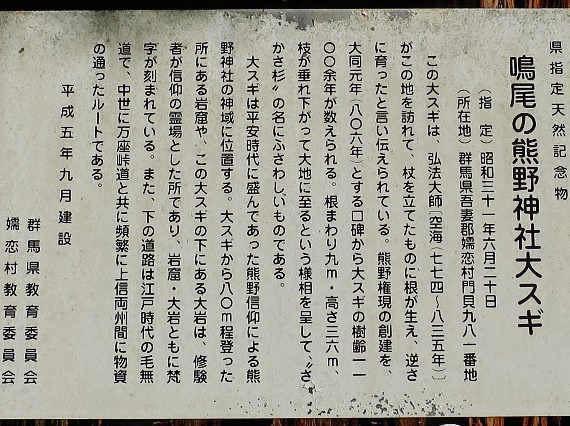 県指定天然記念物
鳴尾の熊野神社大スギ
（指　定）昭和三十一年六月二十日
（所在地）群馬県吾妻郡嬬恋村門貝九八一番地
この大スギは、弘法大師〔空海（七七四〜八三五年）〕
がこの地を訪れて、杖を立てたものに根が生え、逆さ
に育ったと言い伝えられている。熊野権現の創建を、
大同元年（八〇六年）とする口碑から大スギの樹齢一一
〇〇余年が数えられる。根まわり九ｍ・高さ三六ｍ、
枝が垂れ下がって大地に至るという様相を呈して、〝さ
かさ杉〟の名にふさわしいものである。
大スギは平安時代に盛んであった熊野信仰による熊
野神社の神域に位置する。大スギから八〇ｍ程登った
所にある岩窟や、この大スギの下にある大岩は、修験
者が信仰の霊場とした所であり、岩窟・大岩ともに梵
字が刻まれている。また、下の道路は江戸時代の毛無
道で、中世に万座峠道と共に頻繁に上信両州間に物資
の通ったルートである。
平成五年九月建設
群馬県教育委員会
嬬恋村教育委員会